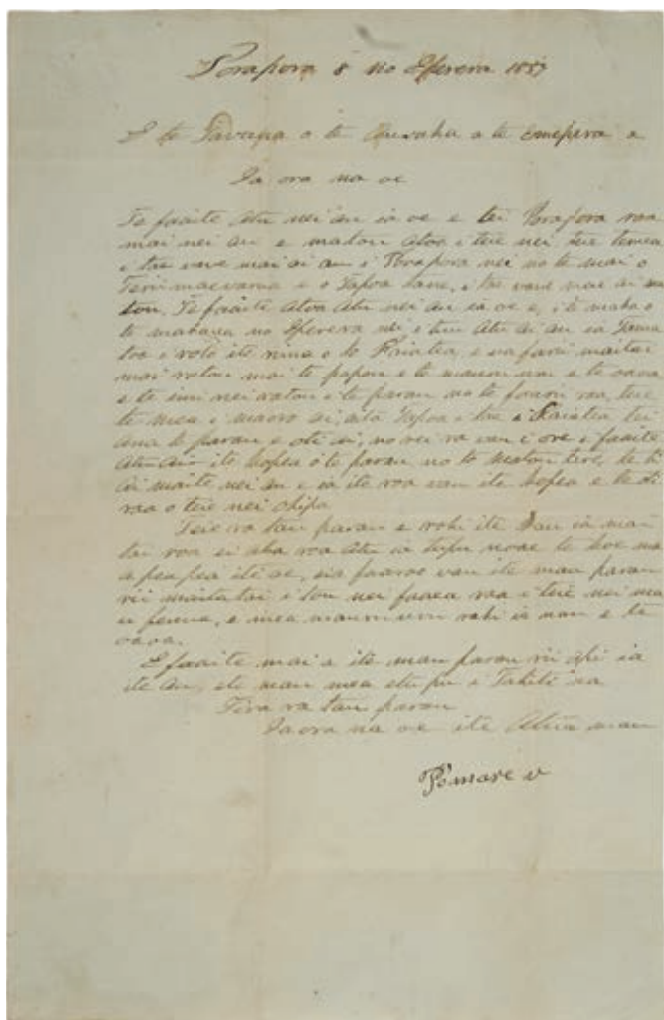 Porapora 8 no Eperera 1857
E te Tavana o te Auvaha o te Emepera a
Ia ora na oe
Te faaite atu nei au ia oe e tei Porapora roa
mai nei au e matou atoa i teie nei tere
i tae vave mai ai au i Porapora nei no te mai o
Teriimaevarua e o Tapoa tane, i tae vave mai ai ma
tou. Te faaite atoa atu nei au ia oe e, i te maha o
te mahana no Eperera nei i tuu atu ai au ia Tama
toa i roto ite nuna o to Raiatea, e ua farii maitai
mai ratou mai te popou e te mauruuru e te oaoa
e te imi nei ratou i te parau no te faaoti raa, teie
te mea i maoro ai, aita Tapoa i tae i Raiatea tei
ana te parau e oti ai, no reira vau i ore i faaite
atu ai ite hopea o te parau no to matou tere, te ti
ai maite nei au e ia ite roa vau ite hopea e te oti
raa o teie nei ohipa
Teie ra tau parau e rohi ite hau ia mai
tai roa ei aha roa atu ia tupu noa te hoe ma
a peapea iti ae, ia faaroo vau ite mau parau
rii maitatai i tou nei faaea raa i teie nei ma
u fenua, e mea mauruuru rahi ia nau e te
oaoa.
E faaite mai a ite mau parau rii api ia
ite au, ite mau mea e tupu i Tahiti na
Tira ra tau parau
Ia ora na oe ite Atua mau
Pomare v